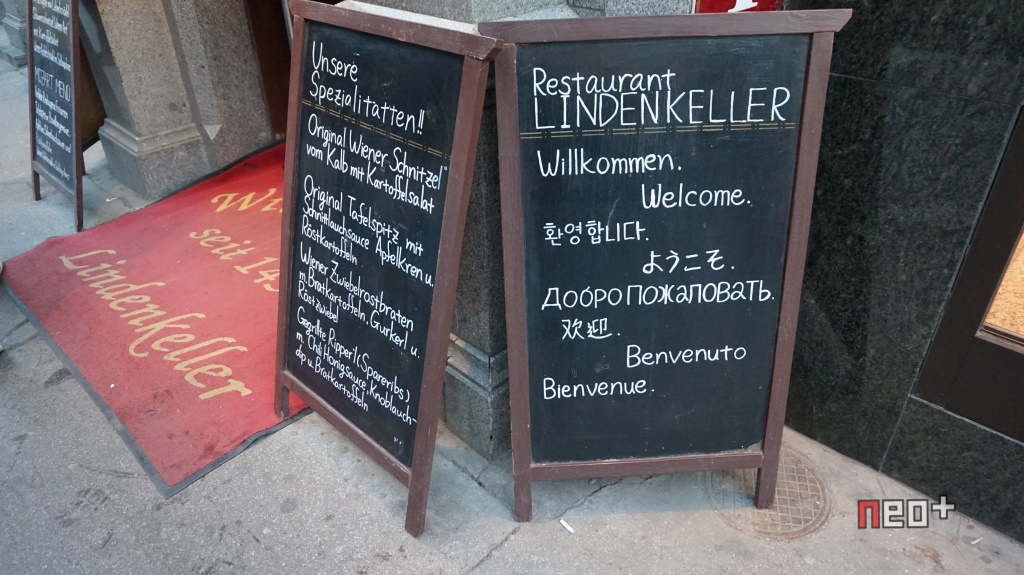 MOZART MENÜ
Unsere
Spezialitatten!!
Original Wiener Schnitzel
vom Kalb mit Kartoffelsalat
Original Tafelspitz mit
Schnittlauchsauce Apfelkren u.
Röstkartoffeln
Wiener Zwiebelrostbraten
m. Bratkartoffeln, Gurkerl u.
Röstzwiebel
Gegrillte Ripperl (Spareribs)
m. Chili Honigsauce, Knoblauch-
dip u. Bratkartoffeln
seit
Lindenkeller
Restaurant
LINDENKELLER
Willkommen.
Welcome.
환영합니다.
ようこそ.
Добро пожаловать.
欢迎.
Benvenuto
Bienvenue.
neo+